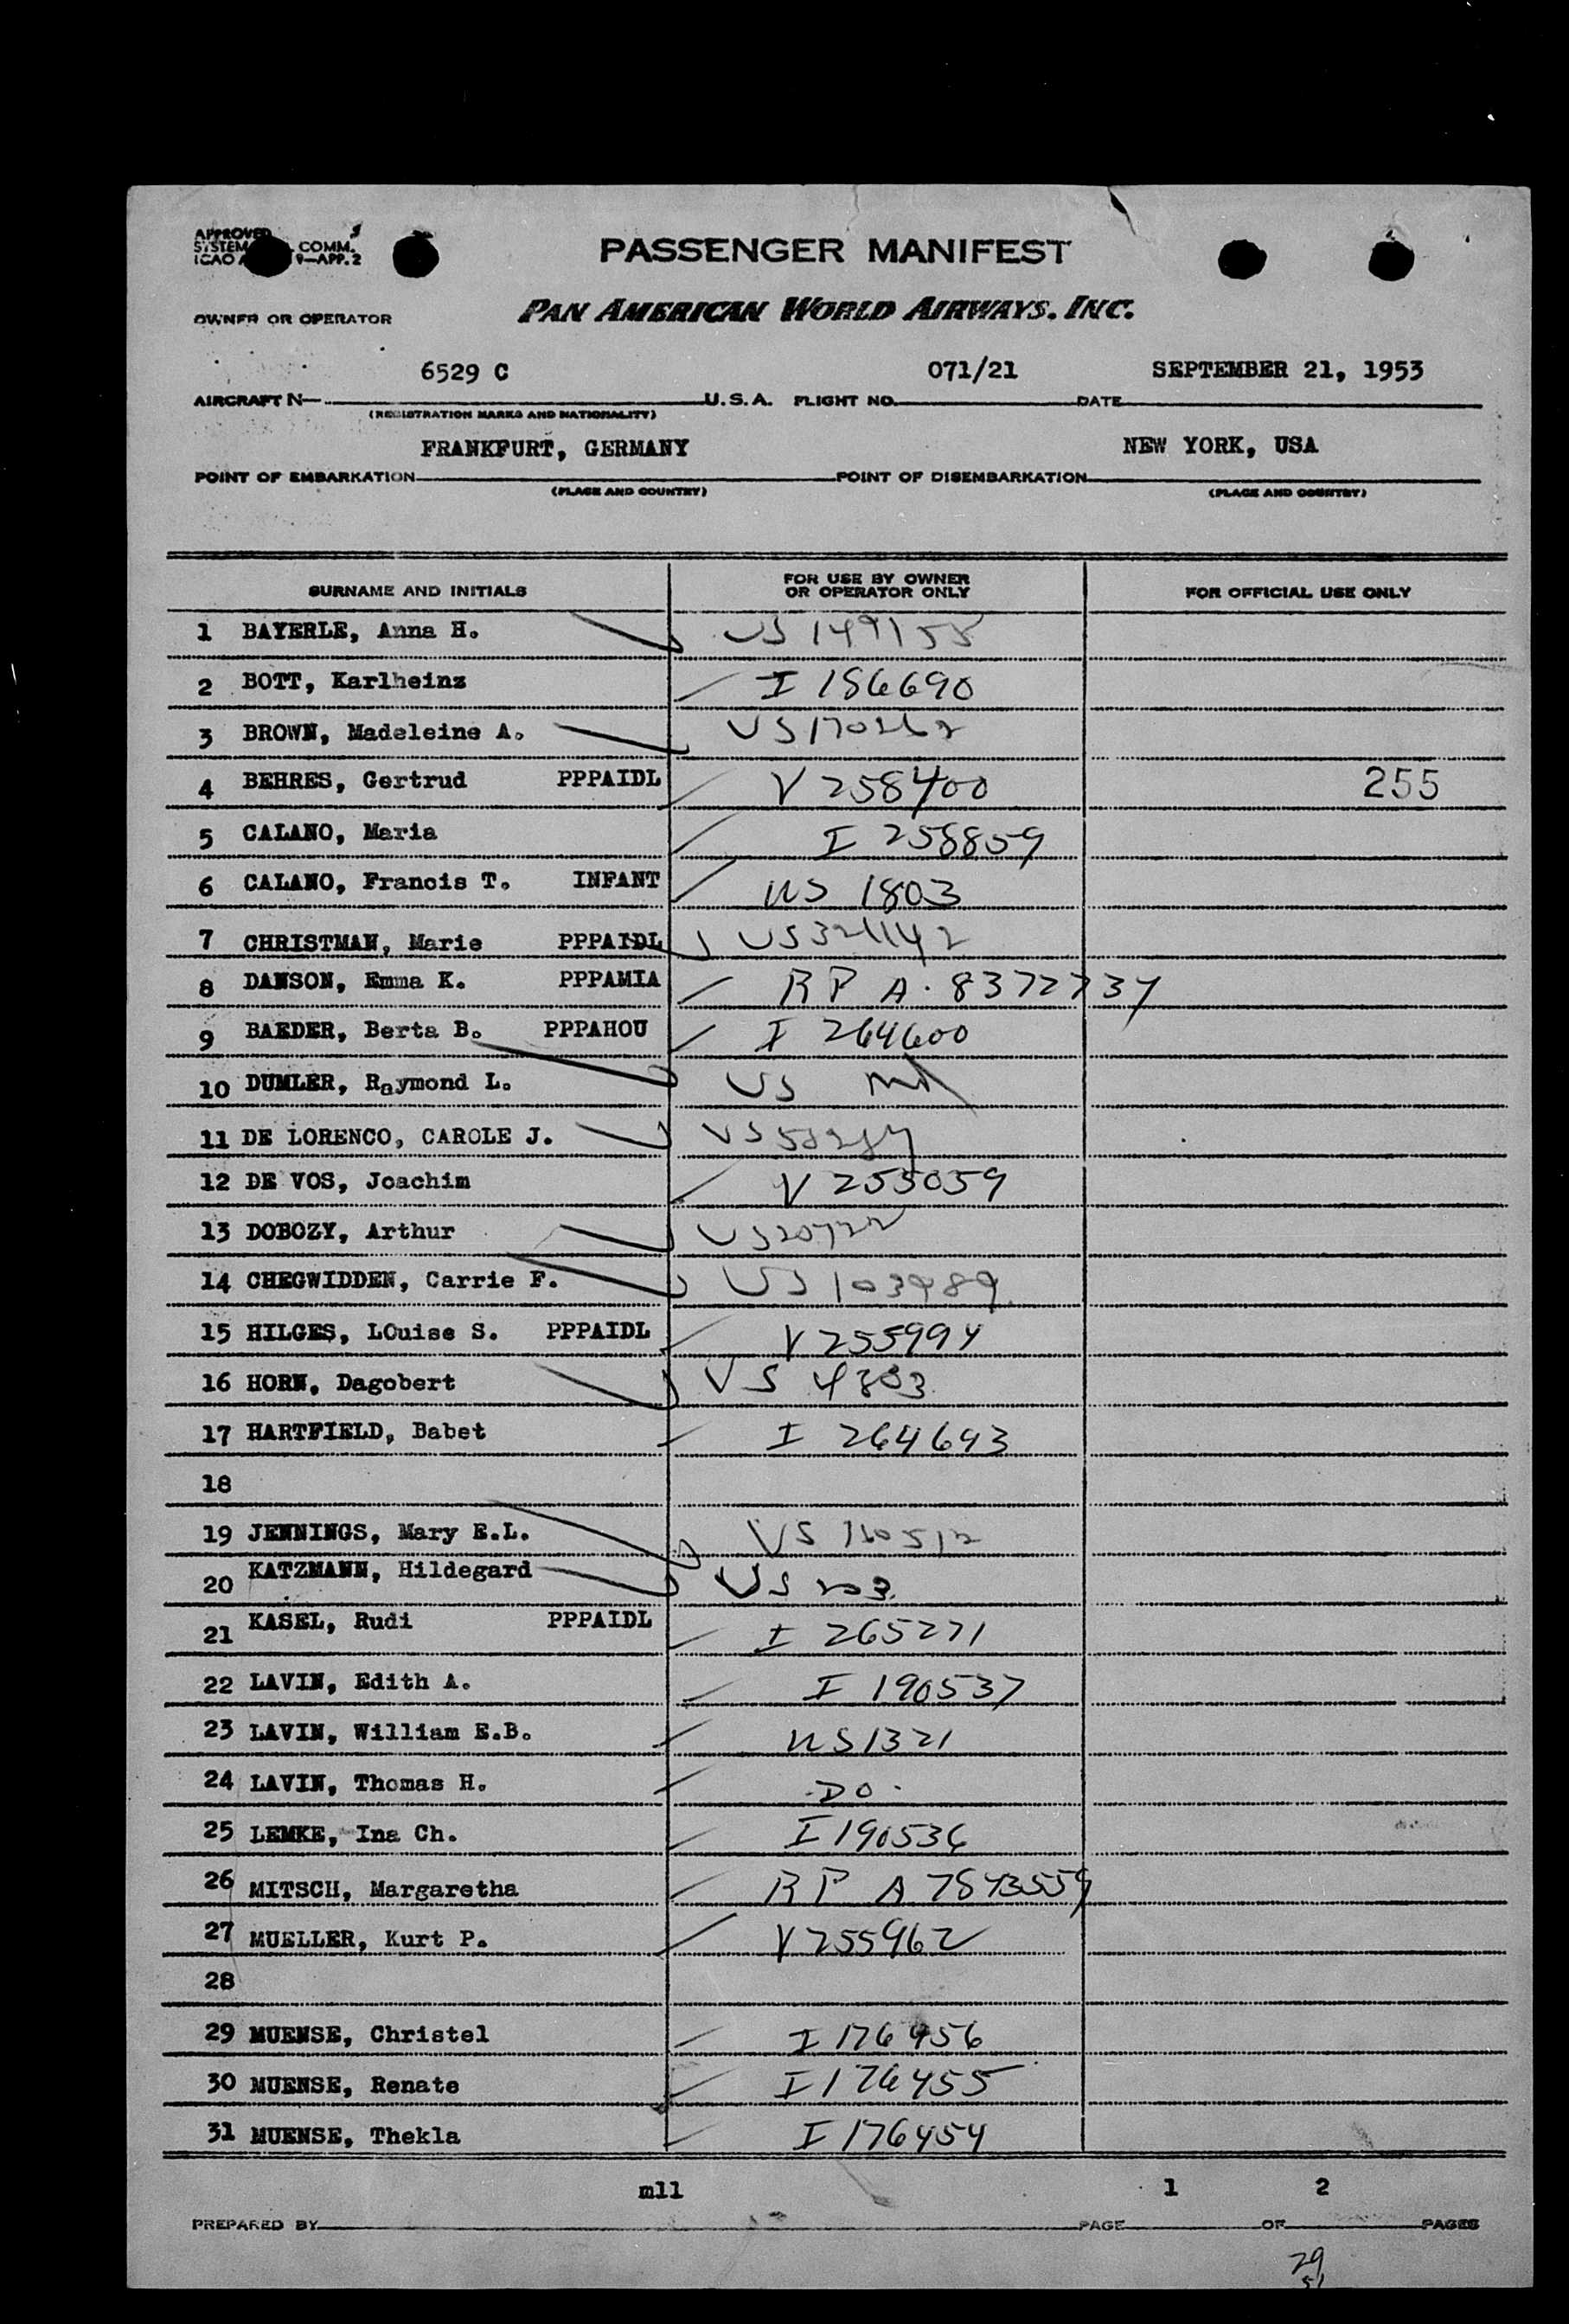 APPROVED
SYSTEM COMM.
ICAO 9—APP.2
PASSENGER MANIFEST
OWNER OR OPERATOR PAN AMERICAN WORLD AIRWAYS, INC.
6529 C 071/21 SEPTEMBER 21, 1953
AIRCRAFT N— U.S.A. FLIGHT NO. DATE
(REGISTRATION MARKS AND NATIONALITY)
FRANKFURT, GERMANY NEW YORK, USA
POINT OF EMBARKATION POINT OF DISEMBARKATION
(PLACE AND COUNTRY) (PLACE AND COUNTRY)
SURNAME AND INITIALS FOR USE BY OWNER OR OPERATOR ONLY FOR OFFICIAL USE ONLY
1 BAYERLE, Anna H. US 149155
2 BOTT, Karlheinz I 186690
3 BROWN, Madeleine A. US 170262
4 BEHRES, Gertrud PPPAIDL V 258400 255
5 CALANO, Maria I 258859
6 CALANO, Francis T. INFANT US 1803
7 CHRISTMAN, Marie PPPAIDL US 321142
8 DANSON, Emma K. PPPAMIA RP A. 8372737
9 BAEDER, Berta B. PPPAHOU I 264600
10 DUMLER, Raymond L. US
11 DE LORENCO, CAROLE J. US
12 DE VOS, Joachim V 255059
13 DOBOZY, Arthur US
14 CHEGWIDDEN, Carrie F. US 103989
15 HILGES, LOuise S. PPPAIDL V 255994
16 HORN, Dagobert US 4803
17 HARTFIELD, Babet I 264693
18
19 JENNINGS, Mary E.L. US 160512
20 KATZMANN, Hildegard US 203
21 KASEL, Rudi PPPAIDL I 265271
22 LAVIN, Edith A. I 190537
23 LAVIN, William E.B. US 1321
24 LAVIN, Thomas H. DO
25 LEMKE, Ina Ch. I 190536
26 MITSCH, Margaretha RP A 7843559
27 MUELLER, Kurt P. V 255962
28
29 MUENSE, Christel I 176456
30 MUENSE, Renate I 176455
31 MUENSE, Thekla I 176454
mll 1 2
PREPARED BY PAGE OF PAGES
29
51